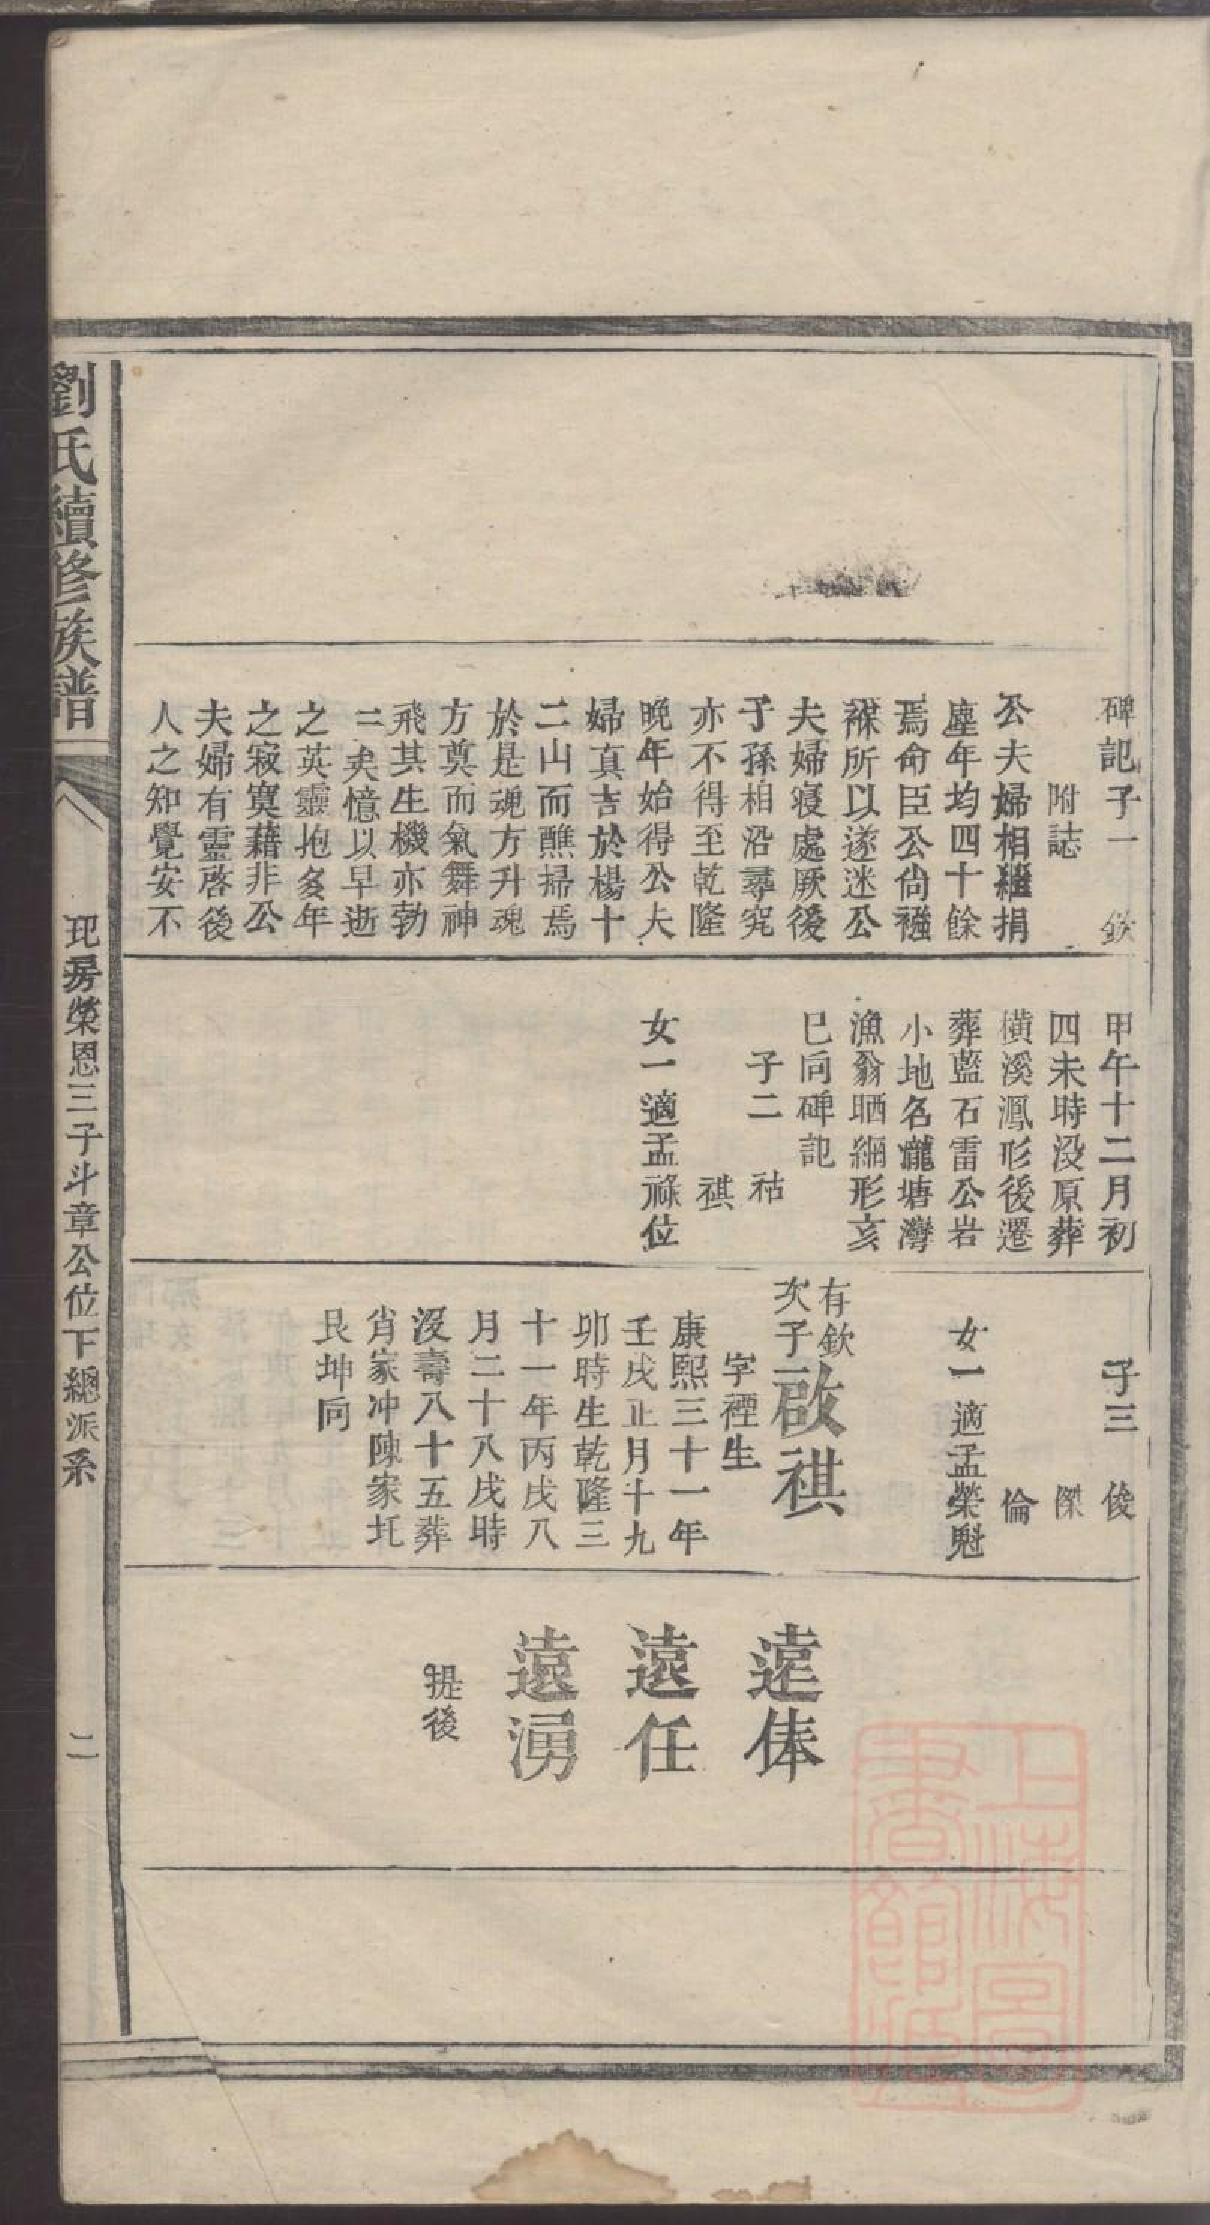 碑記子一　欽
附誌
公夫婦相繼捐
塵年均四十餘
焉命臣公尙襁
褓所以遂迷公
夫婦寢處厥後
子孫相沿尋究
亦不得至乾隆
晚年始得公夫
婦真吉於楊十
二山而醮掃焉
於是魂方升魂
方奠而氣舞神
飛其生機亦勃
二矣憶以早逝
之英靈抱多年
之寂寞藉非公
夫婦有靈啓後
人之知覺安不
甲午十二月初
四未時没原葬
橫溪鳳形後遷
葬藍石雷公岩
小地名瀧塘灣
漁翁晒網形亥
巳向碑記
子二　祜
祺
女一適孟祿位
子三　俊
傑
倫
女一適孟榮魁
有欽
次子啟祺
字禋生
康熙三十一年
壬戌正月十九
卯時生乾隆三
十一年丙戌八
月二十八戌時
沒壽八十五葬
肖家冲陳家圫
艮坤向
遠俸
遠任
遠湧
提後
劉氏續修族譜
玘房榮恩三子斗章公位下總派系
二
上海圖
書館藏